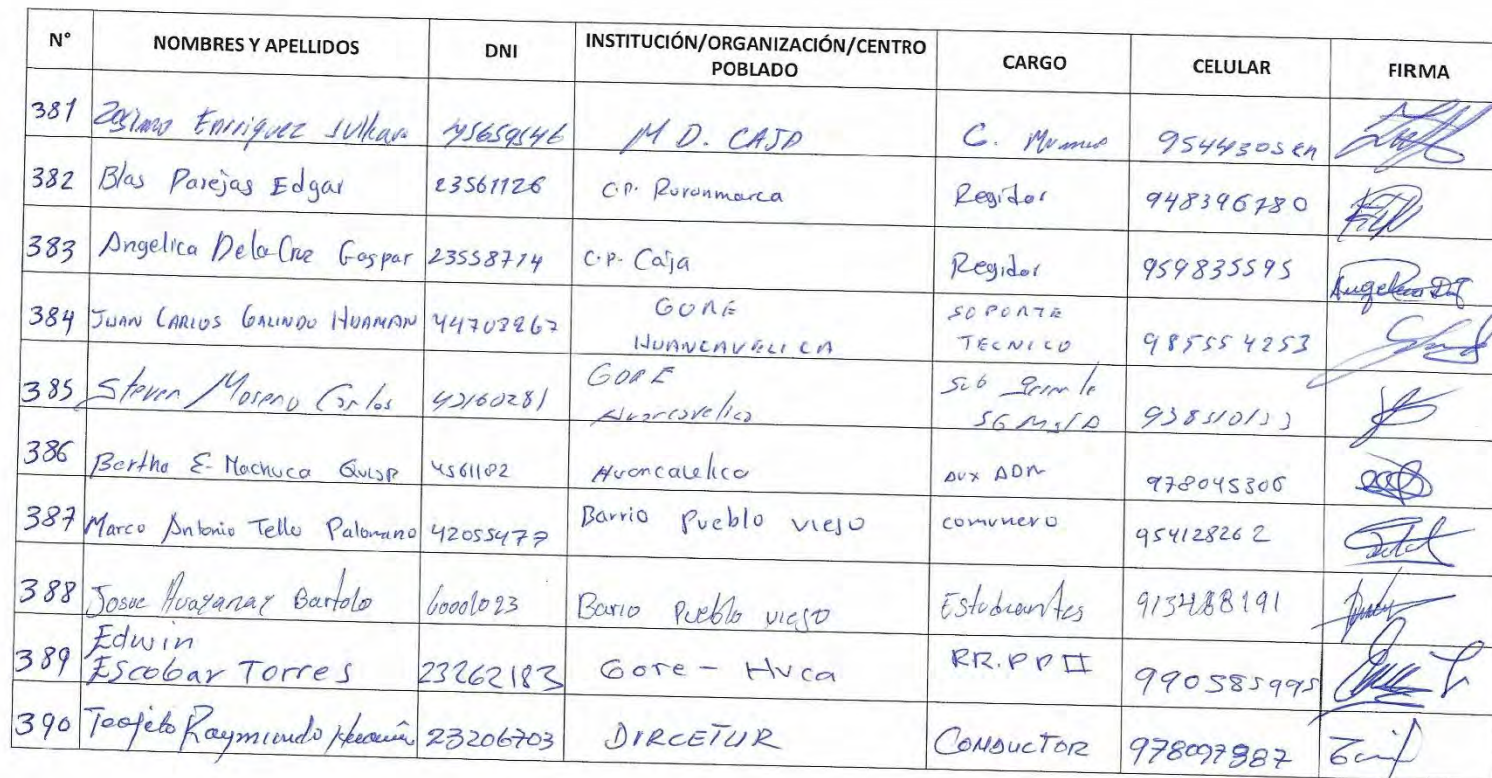 N° NOMBRES Y APELLIDOS DNI INSTITUCIÓN/ORGANIZACIÓN/CENTRO POBLADO CARGO CELULAR FIRMA
381 Enrriquez M D. CAJA C.
382 Blas Parejas Edgar 23561126 C.P. Ruranmarca Regidor 948396780
383 Angelica Dela Cruz Gaspar 23558714 C.P. Caja Regidor 959835595
384 JUAN CARLOS GALINDO HUAMAN 44703267 GORE HUANCAVELICA SOPORTE TECNICO 985554253
385 Steven Moreno Carlos 42160281 GORE Huancavelica Sub
386 Bertha E. Machuca Quisp 4561182 Huancavelica AUX ADM 978045306
387 Marco Antonio Tello Palomino 42055477 Barrio Pueblo viejo comunero 954128262
388 Josue Huayanay Bartolo 60001023 Bario Pueblo viejo Estudiantes 913488191
389 Edwin Escobar Torres 23262183 Gore - Hvca RR.PP II 990585995
390 Raymundo 23206703 DIRCETUR CONDUCTOR 978097987